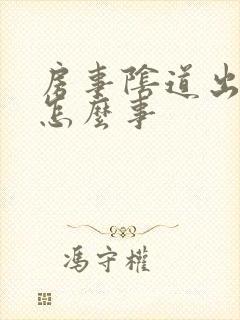 房事陰道出
怎麼事
馮守權